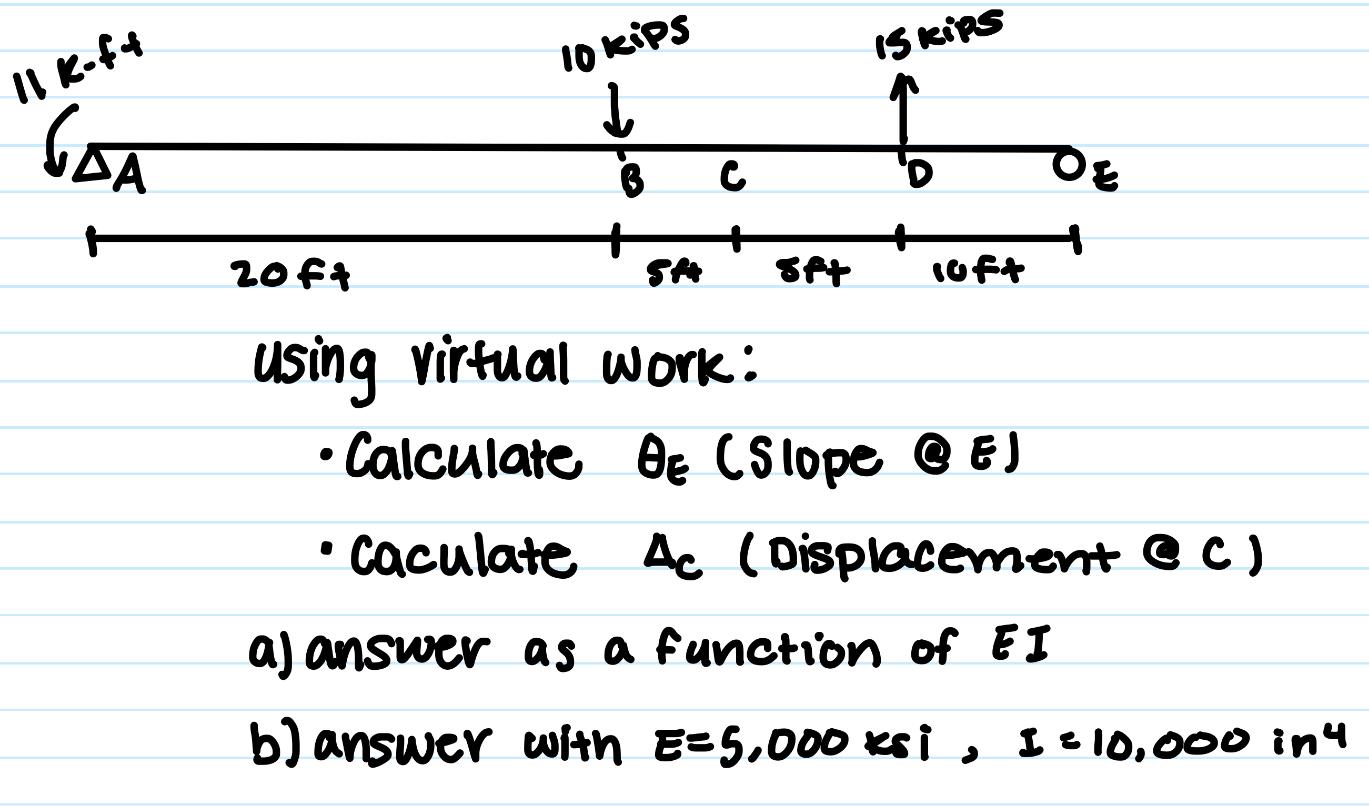 11 K-ft
10 kips
15 kips
A B C D E
20 ft 5ft 5ft 10ft
Using virtual work:
• Calculate θE (Slope @ E)
• Caculate ΔC (Displacement @ C)
a) answer as a function of EI
b) answer with E=5,000 ksi , I = 10,000 in⁴